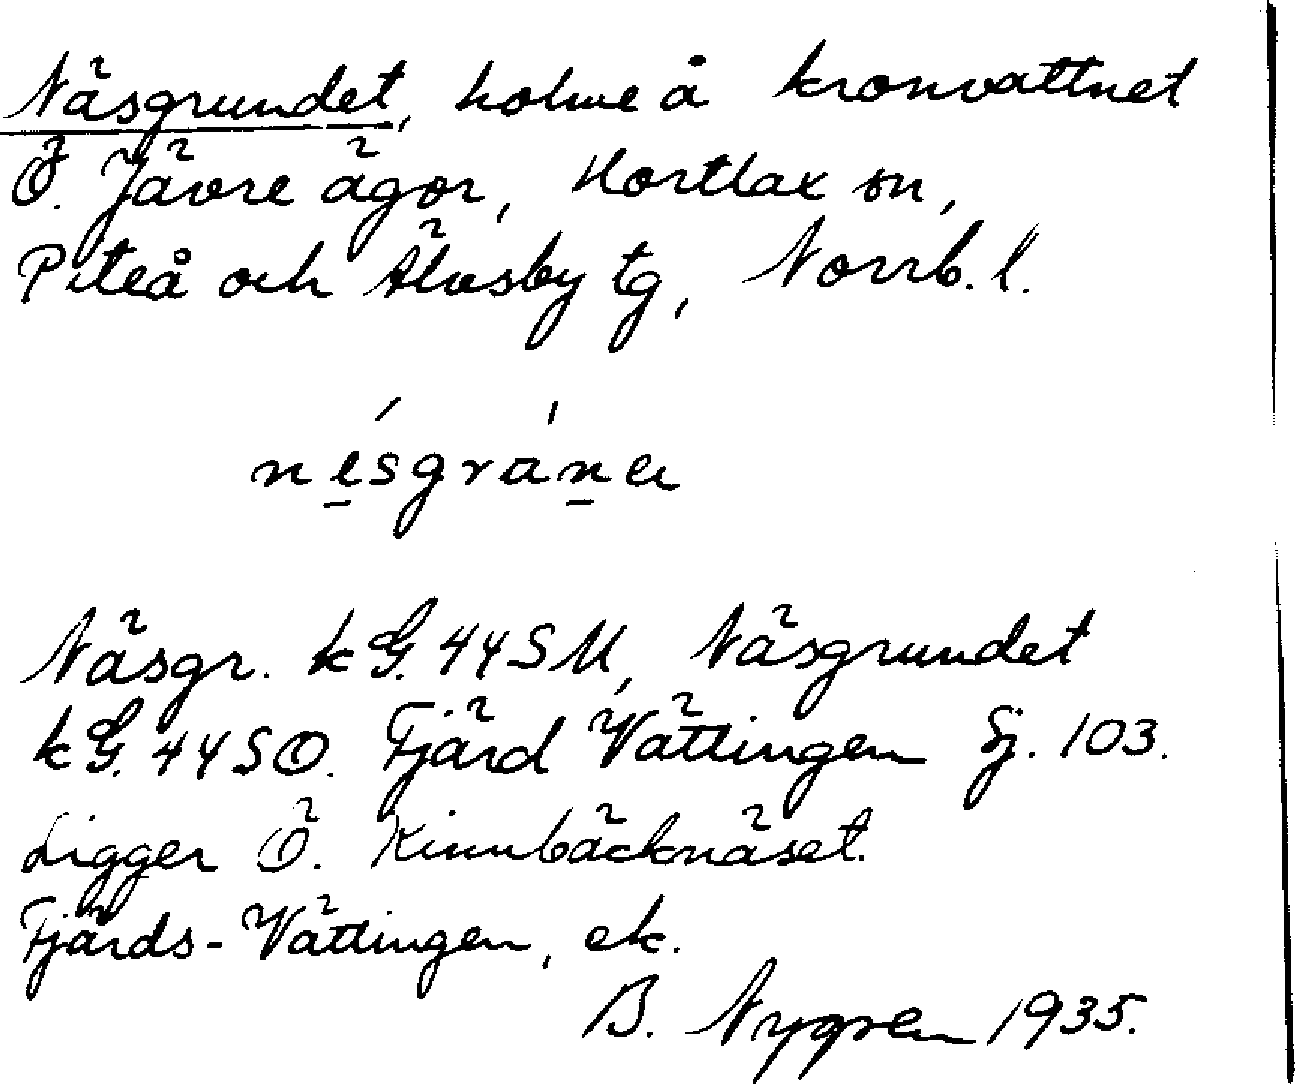 Näsgrundet, holme å kronvattnet
Ö. Jävre ägor, Hortlax sn,
Piteå och Älvsby tg, Norrb. l.
nésgráne
Näsgr. kG. 44SM, Näsgrundet
kG. 44SO. Fjärd Vättingen Sj. 103.
Ligger Ö. Kinnbäcknäset.
Fjärds-Vättingen, ek.
B. Nygren 1935.